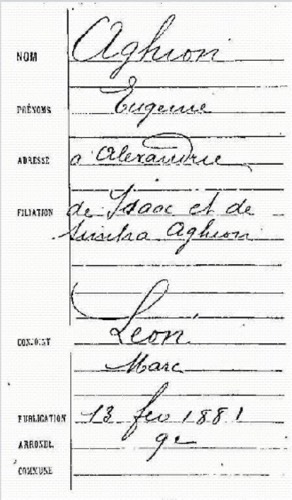 NOM Aghion
PRÉNOMS Eugenie
ADRESSE a Alexandrie
FILIATION de Isaac et de
Aghion
CONJOINT Léon
Marc
PUBLICATION 13 fev 1881
ARRONDt. 9e
COMMUNE